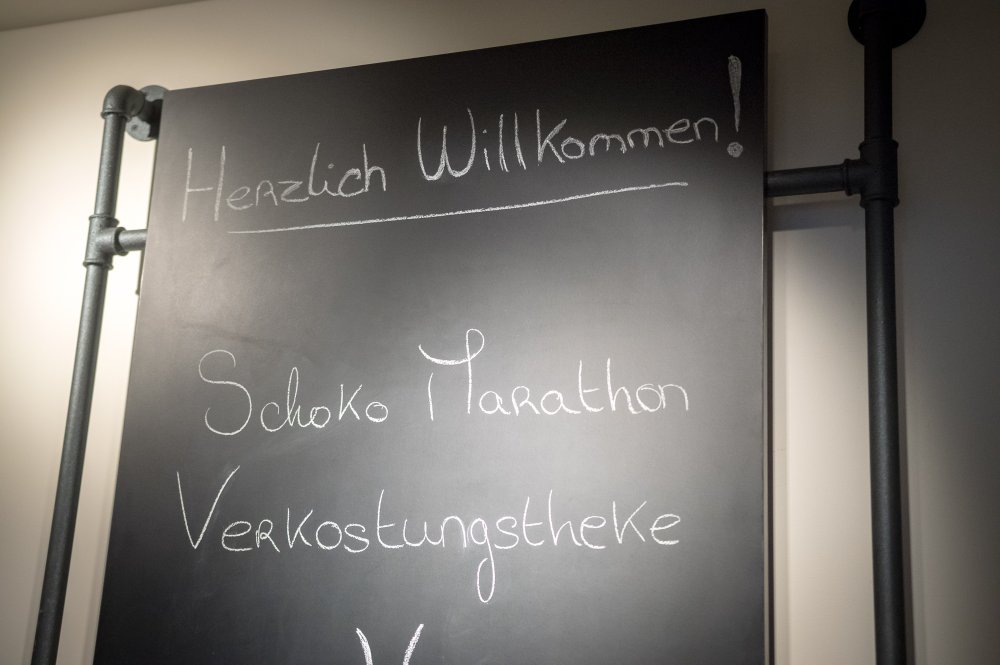 Herzlich Willkommen!
Schoko Marathon
Verkostungstheke